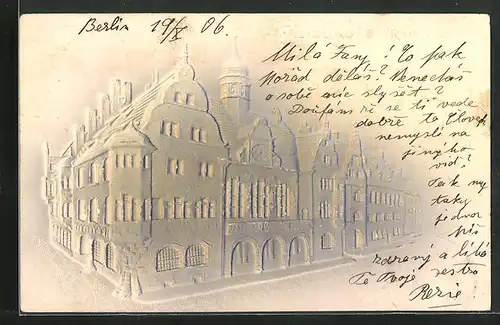 Berlin 19/X 06.
Milá Fany! Co pak
pořád děláš? Nenecháš
o sobě nic slyšet?
Doufám že se ti vede
dobře to člověk
nemyslí na
jiného
viď?
Teik ny
taky
jednou
piš
zdraví a líbá
Te Tvoje sestra
Rezie.